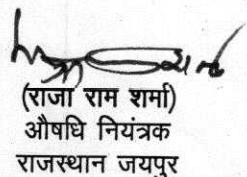 (राजा राम शर्मा)
औषधि नियंत्रक
राजस्थान जयपुर